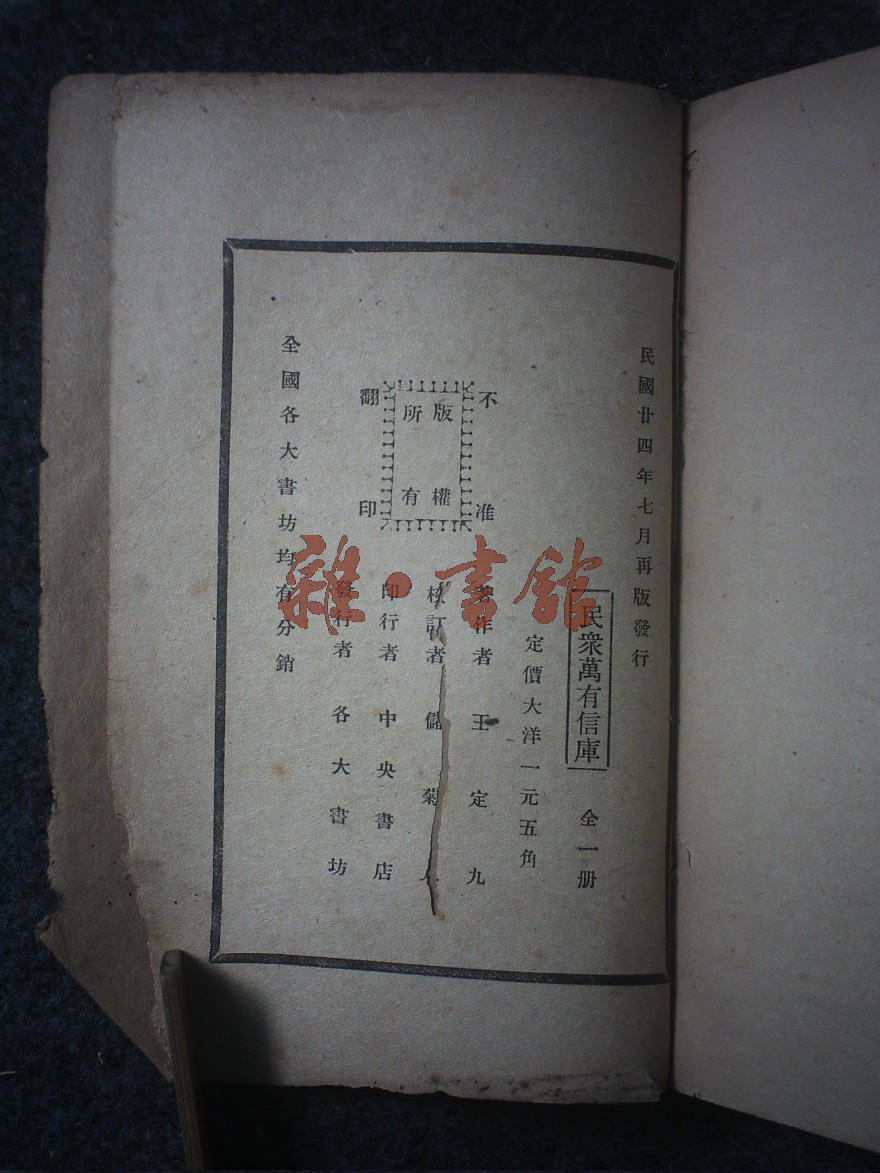 民國廿四年七月再版發行
民衆萬有信庫 全一册
定價大洋一元五角
著作者 王定九
校訂者 儲菊
印行者 中央書店
發行者 各大書坊
不准
版權
所有
翻印
全國各大書坊均有分銷
雜·書館